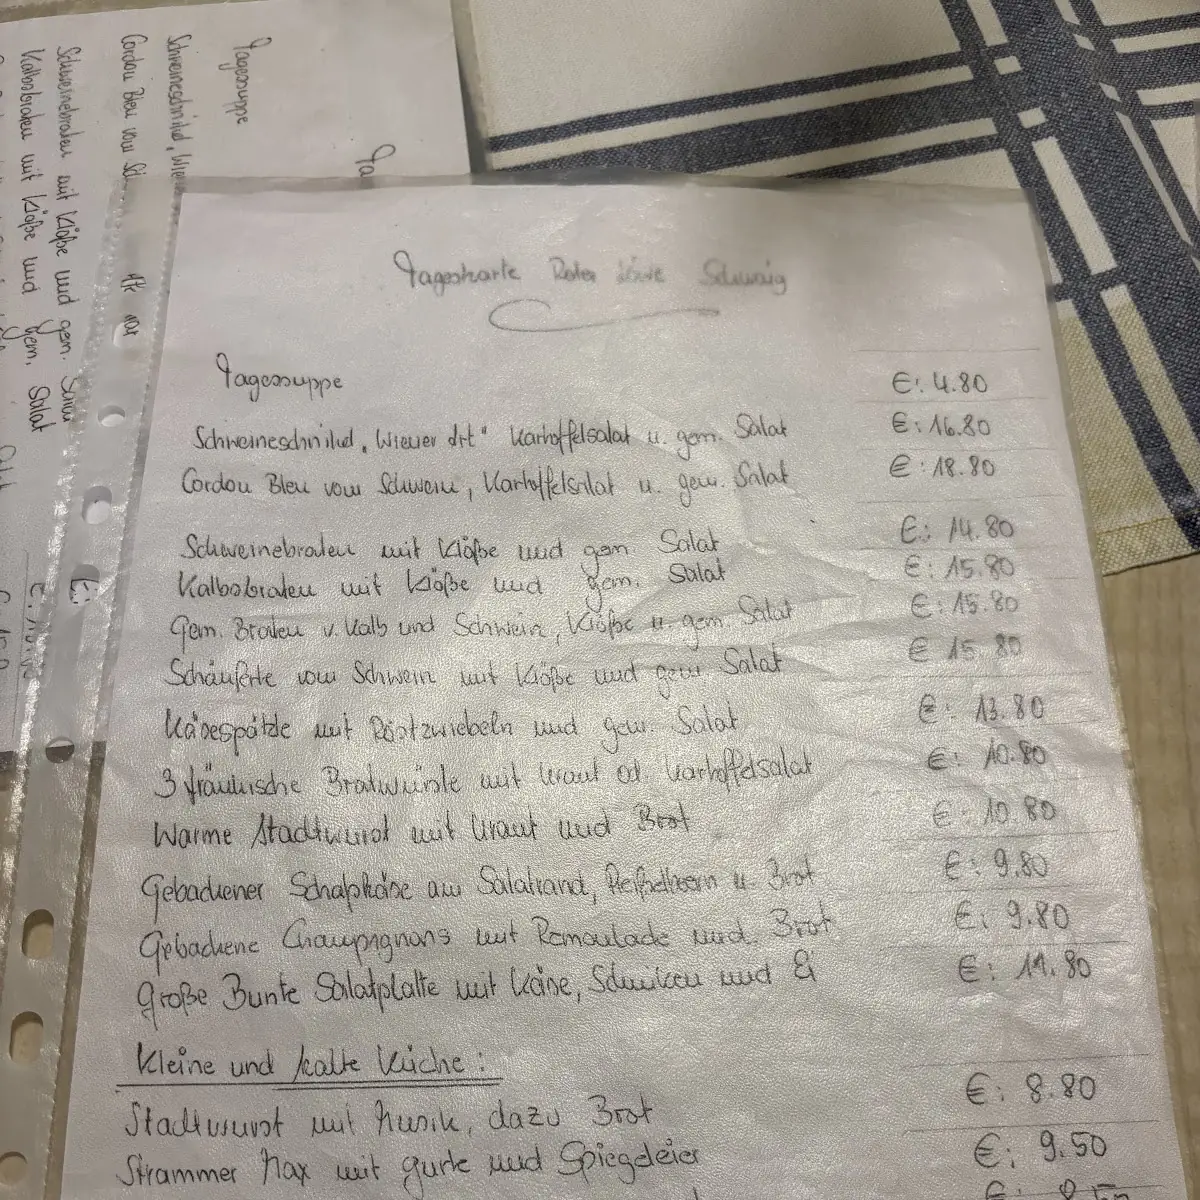 Tagessuppe
Schweineschnitzel, Wie
Cordon Bleu vom Sch
Schweinebraten mit Klöße und gem. Salat
Kalbsbraten mit Klöße und gem. Salat
Ta
Tageskarte Roter Löwe Schwaig
Tagessuppe €: 4.80
Schweineschnitzel "Wiener Art" Kartoffelsalat u. gem. Salat €: 16.80
Cordon Bleu vom Schwein, Kartoffelsalat u. gem. Salat €: 18.80
Schweinebraten mit Klöße und gem. Salat €: 14.80
Kalbsbraten mit Klöße und gem. Salat €: 15.80
Gem. Braten v. Kalb und Schwein, Klöße u. gem. Salat €: 15.80
Schäuferle vom Schwein mit Klöße und gem. Salat € 15.80
Käsespätzle mit Röstzwiebeln und gem. Salat €: 13.80
3 fränkische Bratwürste mit Kraut od. Kartoffelsalat €: 10.80
Warme Stadtwurst mit Kraut und Brot €: 10.80
Gebackener Schafskäse am Salatrand, u. Brot €: 9.80
Gebackene Champignons mit Remoulade und Brot €: 9.80
Große Bunte Salatplatte mit Käse, Schinken und Ei €: 11.80
Kleine und kalte Küche:
Stadtwurst mit Musik, dazu Brot €: 8.80
Strammer Max mit Gurke und Spiegeleier €: 9.50